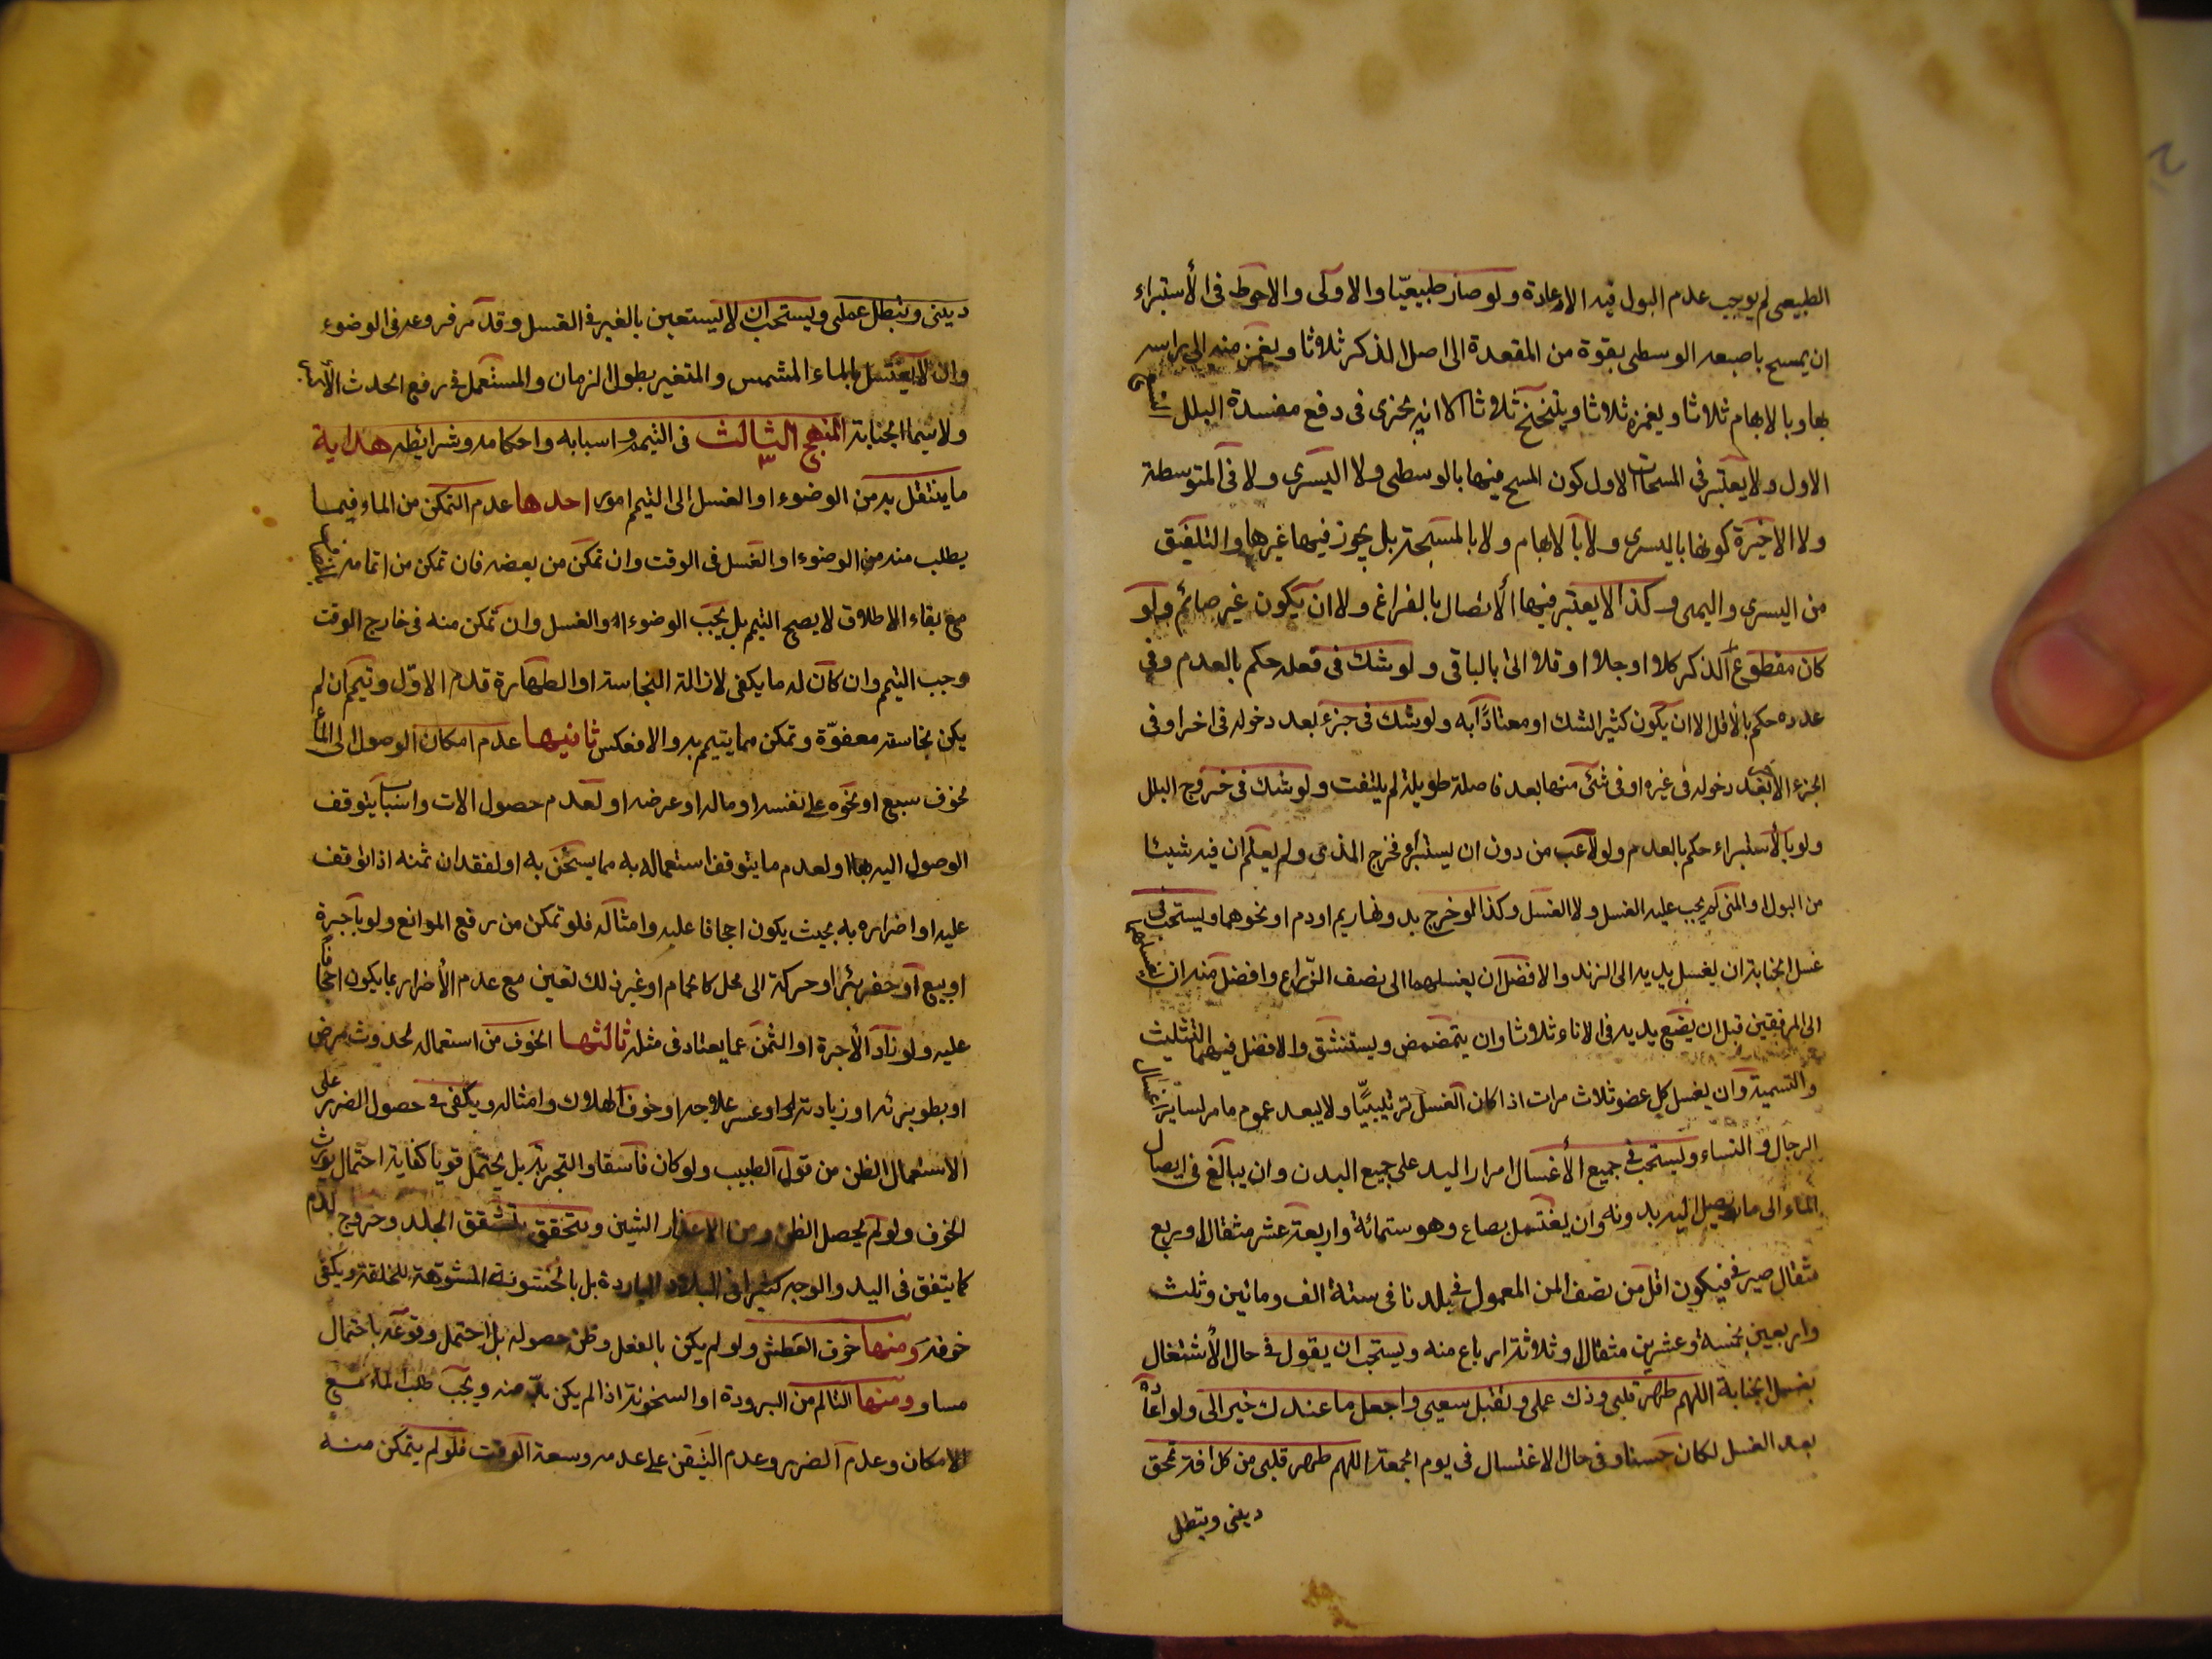 الطبيعى لم يوجب عدم البول فيه الا الاعادة ولو صار طبيعيّا والاولى والاحوط فى الأستبراء
ان يمسح باصبعه الوسطى بقوة من المقعدة الى اصل الذكر ثلاثا ويغمز منه الى راسه
بها وبالابهام ثلاثا ويغمزه ثلاثا ويتنحنح ثلاثا الا انه يجزى فى دفع مفسدة البلل
الاول ولا يعتبر فى المسحات الاول كون المسح فيها بالوسطى ولا اليسرى ولا فى المتوسطة
ولا الاخيرة كونها باليسرى ولا بالابهام ولا بالمسبحة بل يجوز فيها غيرها والتلفيق
من اليسرى واليمى وكذا لا يعتبر فيها الأتصال بالفراغ ولا ان يكون غير صائم ولو
كان مقطوع الذكر كلا او جلا او قلا اتى بالباقى ولو شك فى فعله حكم بالعدم وفى
عدده حكم بالأقل الا ان يكون كثير الشك او معتادًا به ولو شك فى جزء بعد دخوله فى اخر او فى
الجزء الأخير بعد دخوله فى غيره او فى شئ منها بعد فاصلة طويلة لم يلتفت ولو شك فى خروج البلل
ولو بالأستبراء حكم بالعدم ولو لاعب من دون ان يستبرأ فخرج المذى ولم يعلم ان فيه شيئا
من البول او المنى لم يجب عليه الغسل ولا الغسل وكذا لو خرج بدونهما ريم او دم او نحوهما ويستحب فى
غسل الجنابة ان يغسل يديه الى الزند والافضل ان يغسلهما الى نصف الذّراع وافضل منه ان يغسلهما
الى المرفقين قبل ان يضع يديه فى الاناء ثلاثا وان يتمضمض ويستنشق والافضل فيهما التثليث
والتسمية وان يغسل كل عضو ثلاث مرات اذا كان الغسل ترتيبيًّا ولا يبعد عموم ما مر لساير اغسال
الرجال والنساء ويستحب فى جميع الأغسال امرار اليد على جميع البدن وان يبالغ فى ايصال
الماء الى ما يصل اليه بدونه وان يغتسل بصاع وهو ستمائة واربعة عشر مثقال وربع
مثقال صيرفى فيكون اقل من نصف المن المعمول فى بلدنا فى سنة الف ومائين وثلث
واربعين بخمسة وعشرين مثقال وثلاثة ارباع منه ويستحب ان يقول فى حال الأشتغال
بغسل الجنابة اللهم طهر قلبى وزك عملى وتقبل سعيى واجعل ما عندك خيرا لى ولو دعا
بعد الغسل لكان حسنا وفى حال الاغتسال فى يوم الجمعة اللهم طهر قلبى من كل افة تمحق
دينى وتبطل
دينى وتبطل عملى ويستحب ان لا يستعين بالغير فى الغسل وقد مر فروعه فى الوضوء
وان لا يغتسل بالماء المشمس والمتغير بطول الزمان والمستعمل فى رفع الحدث الأكبر
ولا سيما الجنابة المنهج الثالث فى التيمم واسبابه واحكامه وشرايطه هداية
ما ينتقل به من الوضوء او الغسل الى التيمم امور احدها عدم التمكن من الماء فيما
يطلب منه من الوضوء او الغسل فى الوقت وان تمكن من بعضه فان تمكن من اتمامه
مع بقاء الاطلاق لا يصح التيمم بل يجب الوضوء او الغسل وان تمكن منه فى خارج الوقت
وجب التيمم وان كان له ما يكفى لازالة النجاسة او الطهارة قدم الاول وتيمم ان لم
يكن نجاسته معفوّة وتمكن مما يتيمم به والا فعكس ثانيها عدم امكان الوصول الى الماء
لخوف سبع او نحوه على نفسه او ماله او عرضه او لعدم حصول الات واسباب يتوقف
الوصول اليه بها او لعدم ما يتوقف استعماله به مما يسخن به او لفقدان ثمنه اذا توقف
عليه او اضراره به بحيث يكون اجحافا عليه وامثاله فلو تمكن من رفع الموانع ولو باجرة
او بيع او حفر بئر او حركة الى محل كالحمام او غير ذلك تعين مع عدم الأضرار بما يكون اجحافا
عليه ولو زاد الأجرة او الثمن عما يعتاد فى مثله ثالثها الخوف من استعماله لحدوث مرض
او بطوء برئه او زيادته او عسر علاجه او خوف الهلاك وامثاله ويكفى فى حصول الضرر على
الاستعمال الظن من قول الطبيب ولو كان فاسقا والتجربة بل يحتمل قويا كفاية احتمال يورث
الخوف ولو لم يحصل الظن ومن الاعذار الشين ويتحقق بتشقق الجلد وخروج الدم
كما يتفق فى اليد والوجه كثيرا فى البلاد الباردة بل بالخشونة المشوهة للخلقة ويكفى
خوفه ومنها خوف العطش ولو لم يكن بالفعل وظن حصوله بل احتمل وقوعه باحتمال
مساو ومنها التالم من البرودة او السخونة اذا لم يكن بدّ منه ويجب طلب الماء مع
الامكان وعدم الضرر وعدم التيقن على عدمه وسعة الوقت فلو لم يتمكن منه